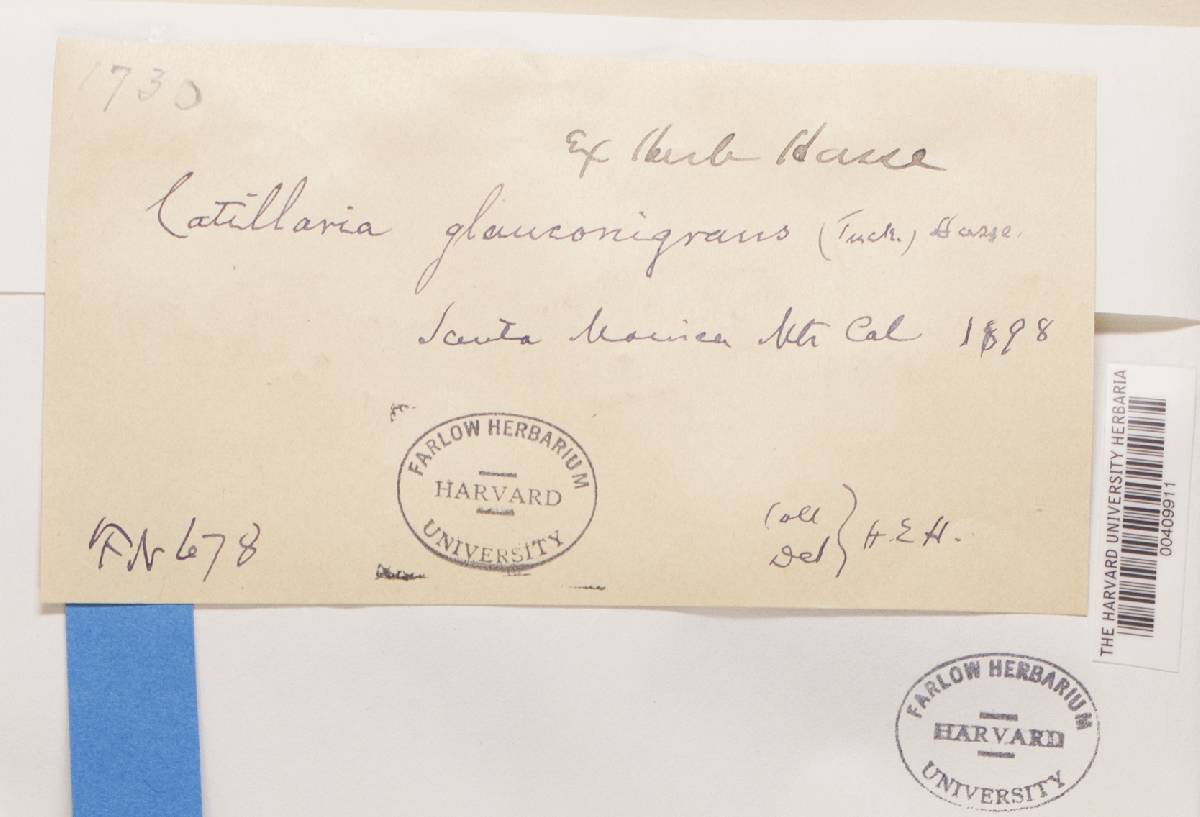 1730
Ex Herb Hasse
Catillaria glauconigrans (Tuck.) Hasse.
Santa Monica Mts Cal 1898
FARLOW HERBARIUM
HARVARD
UNIVERSITY
Coll
Det } H.E.H.
FN 678
THE HARVARD UNIVERSITY HERBARIA
00409911
FARLOW HERBARIUM
HARVARD
UNIVERSITY